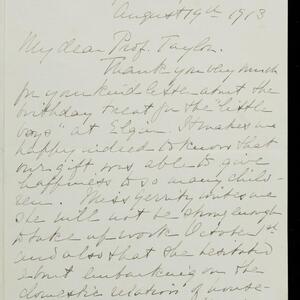 August 19th 1913
My dear Prof. Taylor.
Thank you very much
for your kind letter about the
birthday treat for the "little
boys" at Elgin. It makes me
happy indeed to know that
our gift was able to give
happiness to so many child-
ren. Miss Gerrity writes me
she will not be strong enough
to take up work October 1st
and also that she hesitated
about embarking on the
domestic relation of house-